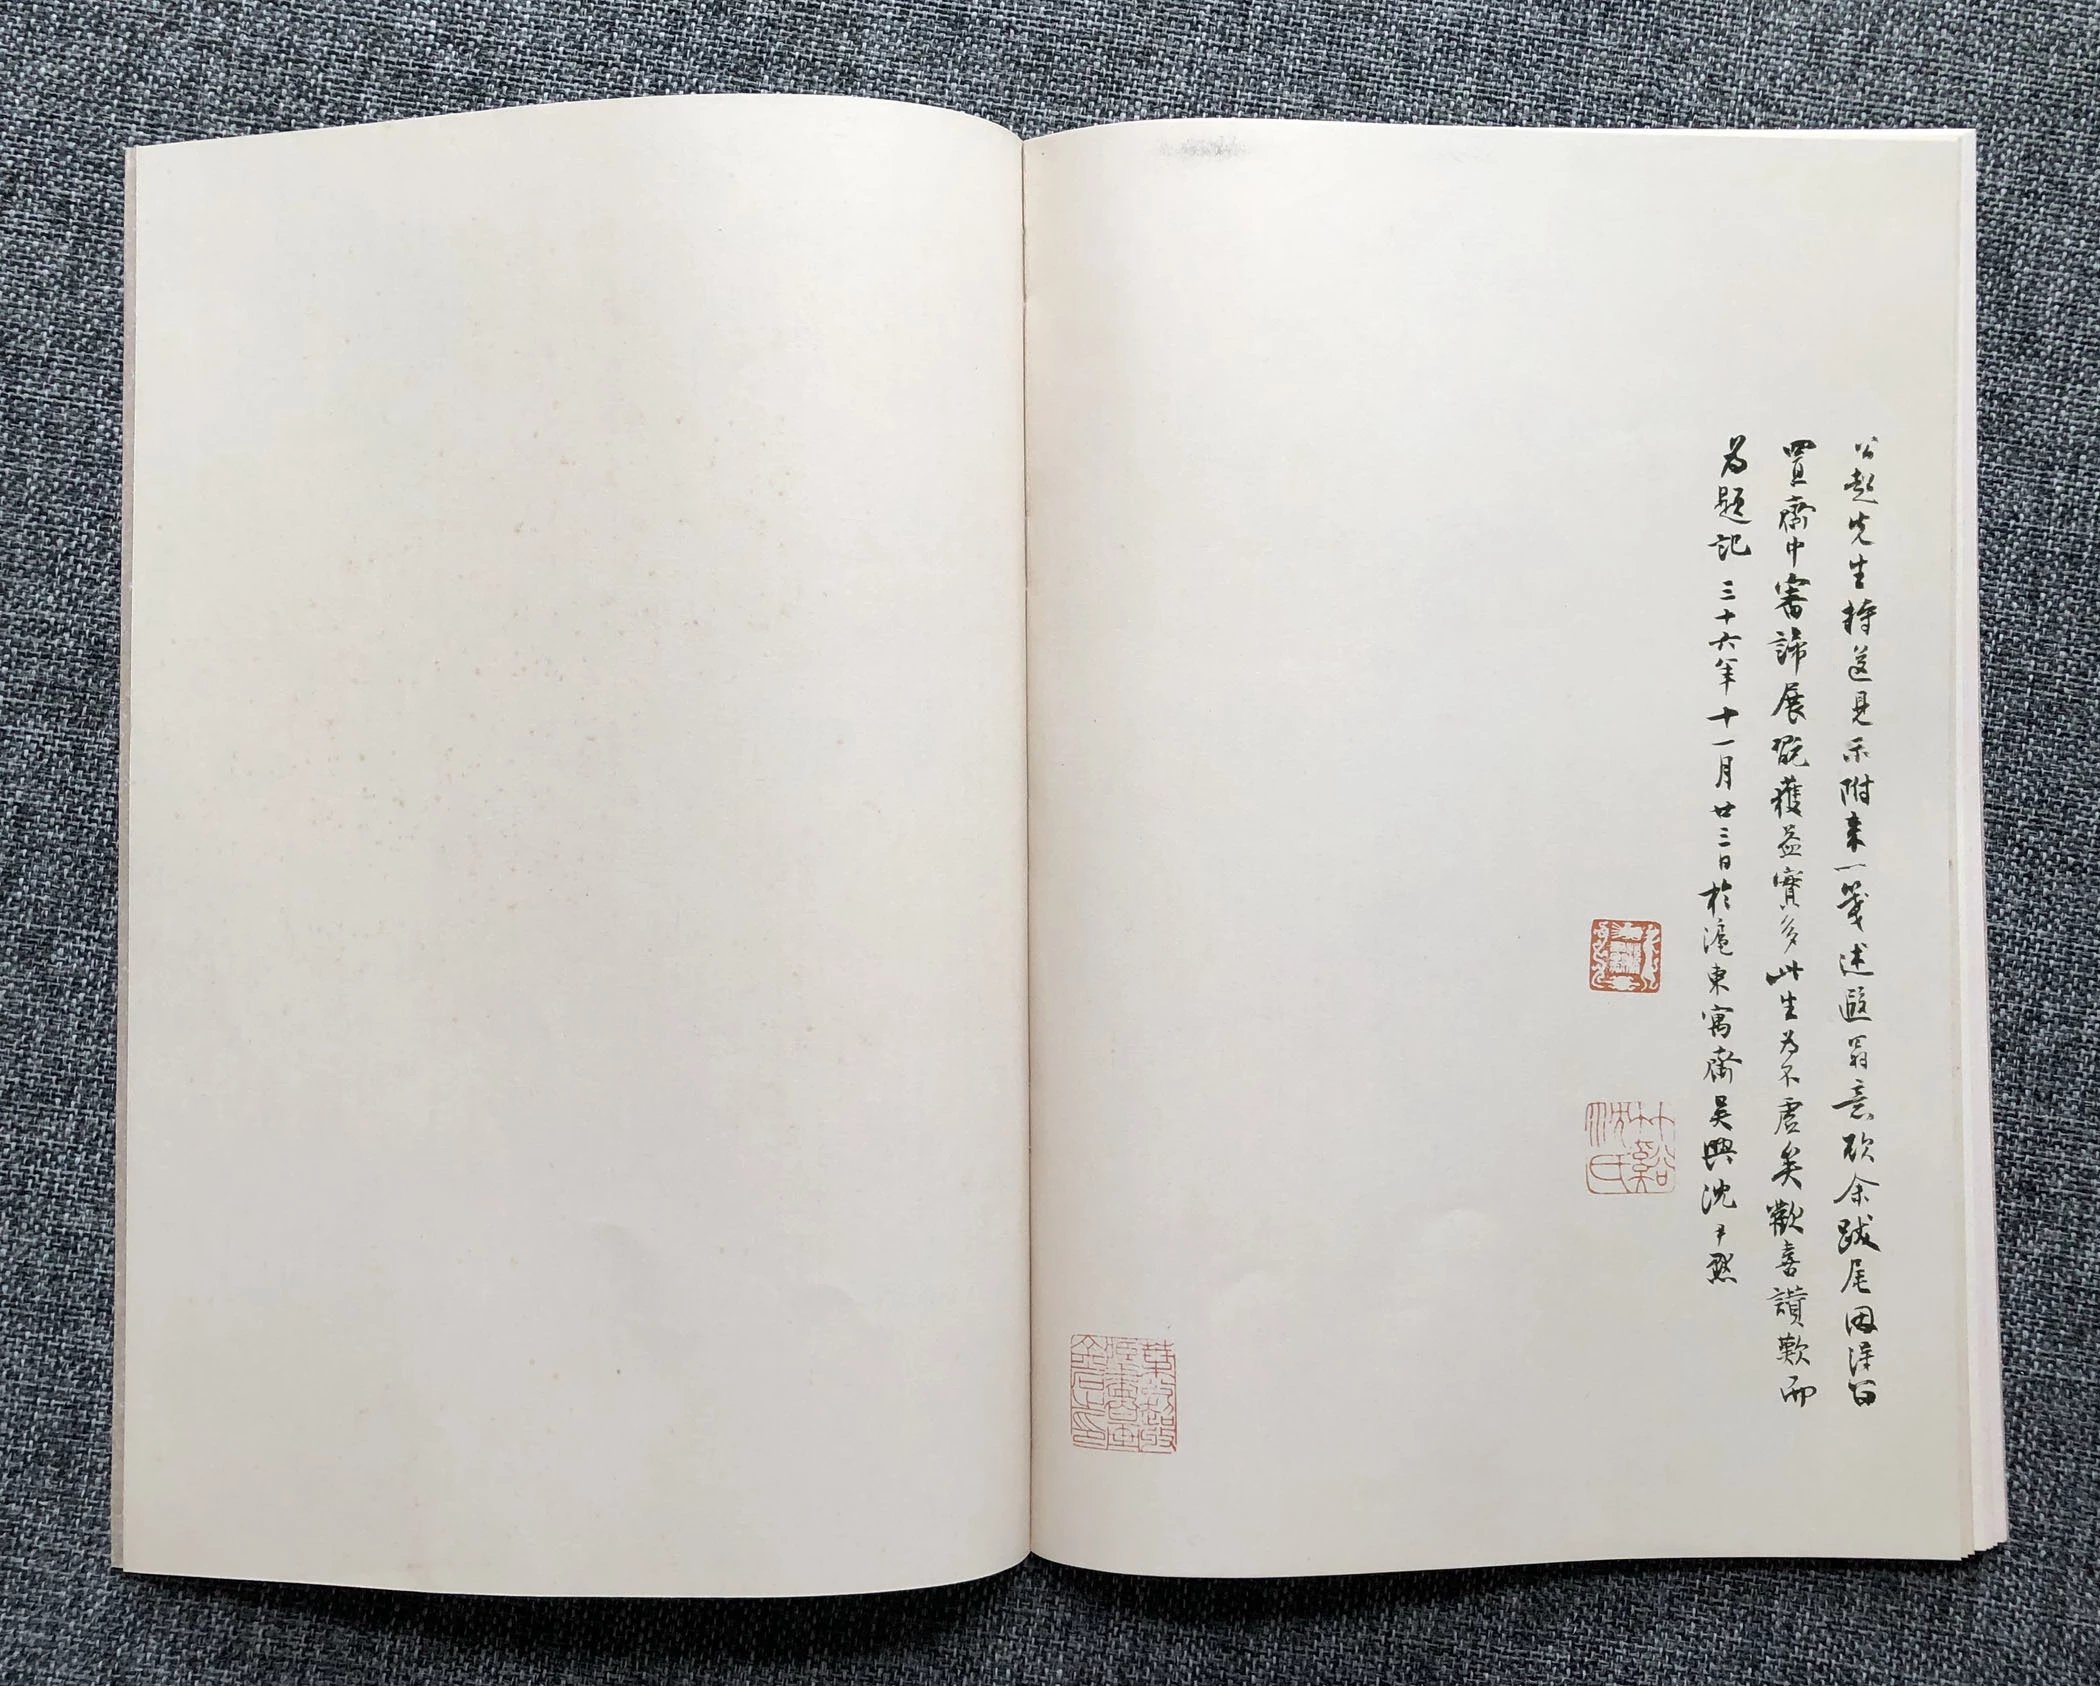 公超先生持送見示附来一箋述遐翁意欲余跋尾因得留
置齋中審諦展翫獲益實多此生為不虛矣歡喜讚歎而
為題記 三十六年十一月廿三日於滬東寓齋吳興沈尹默
竹谿沈氏